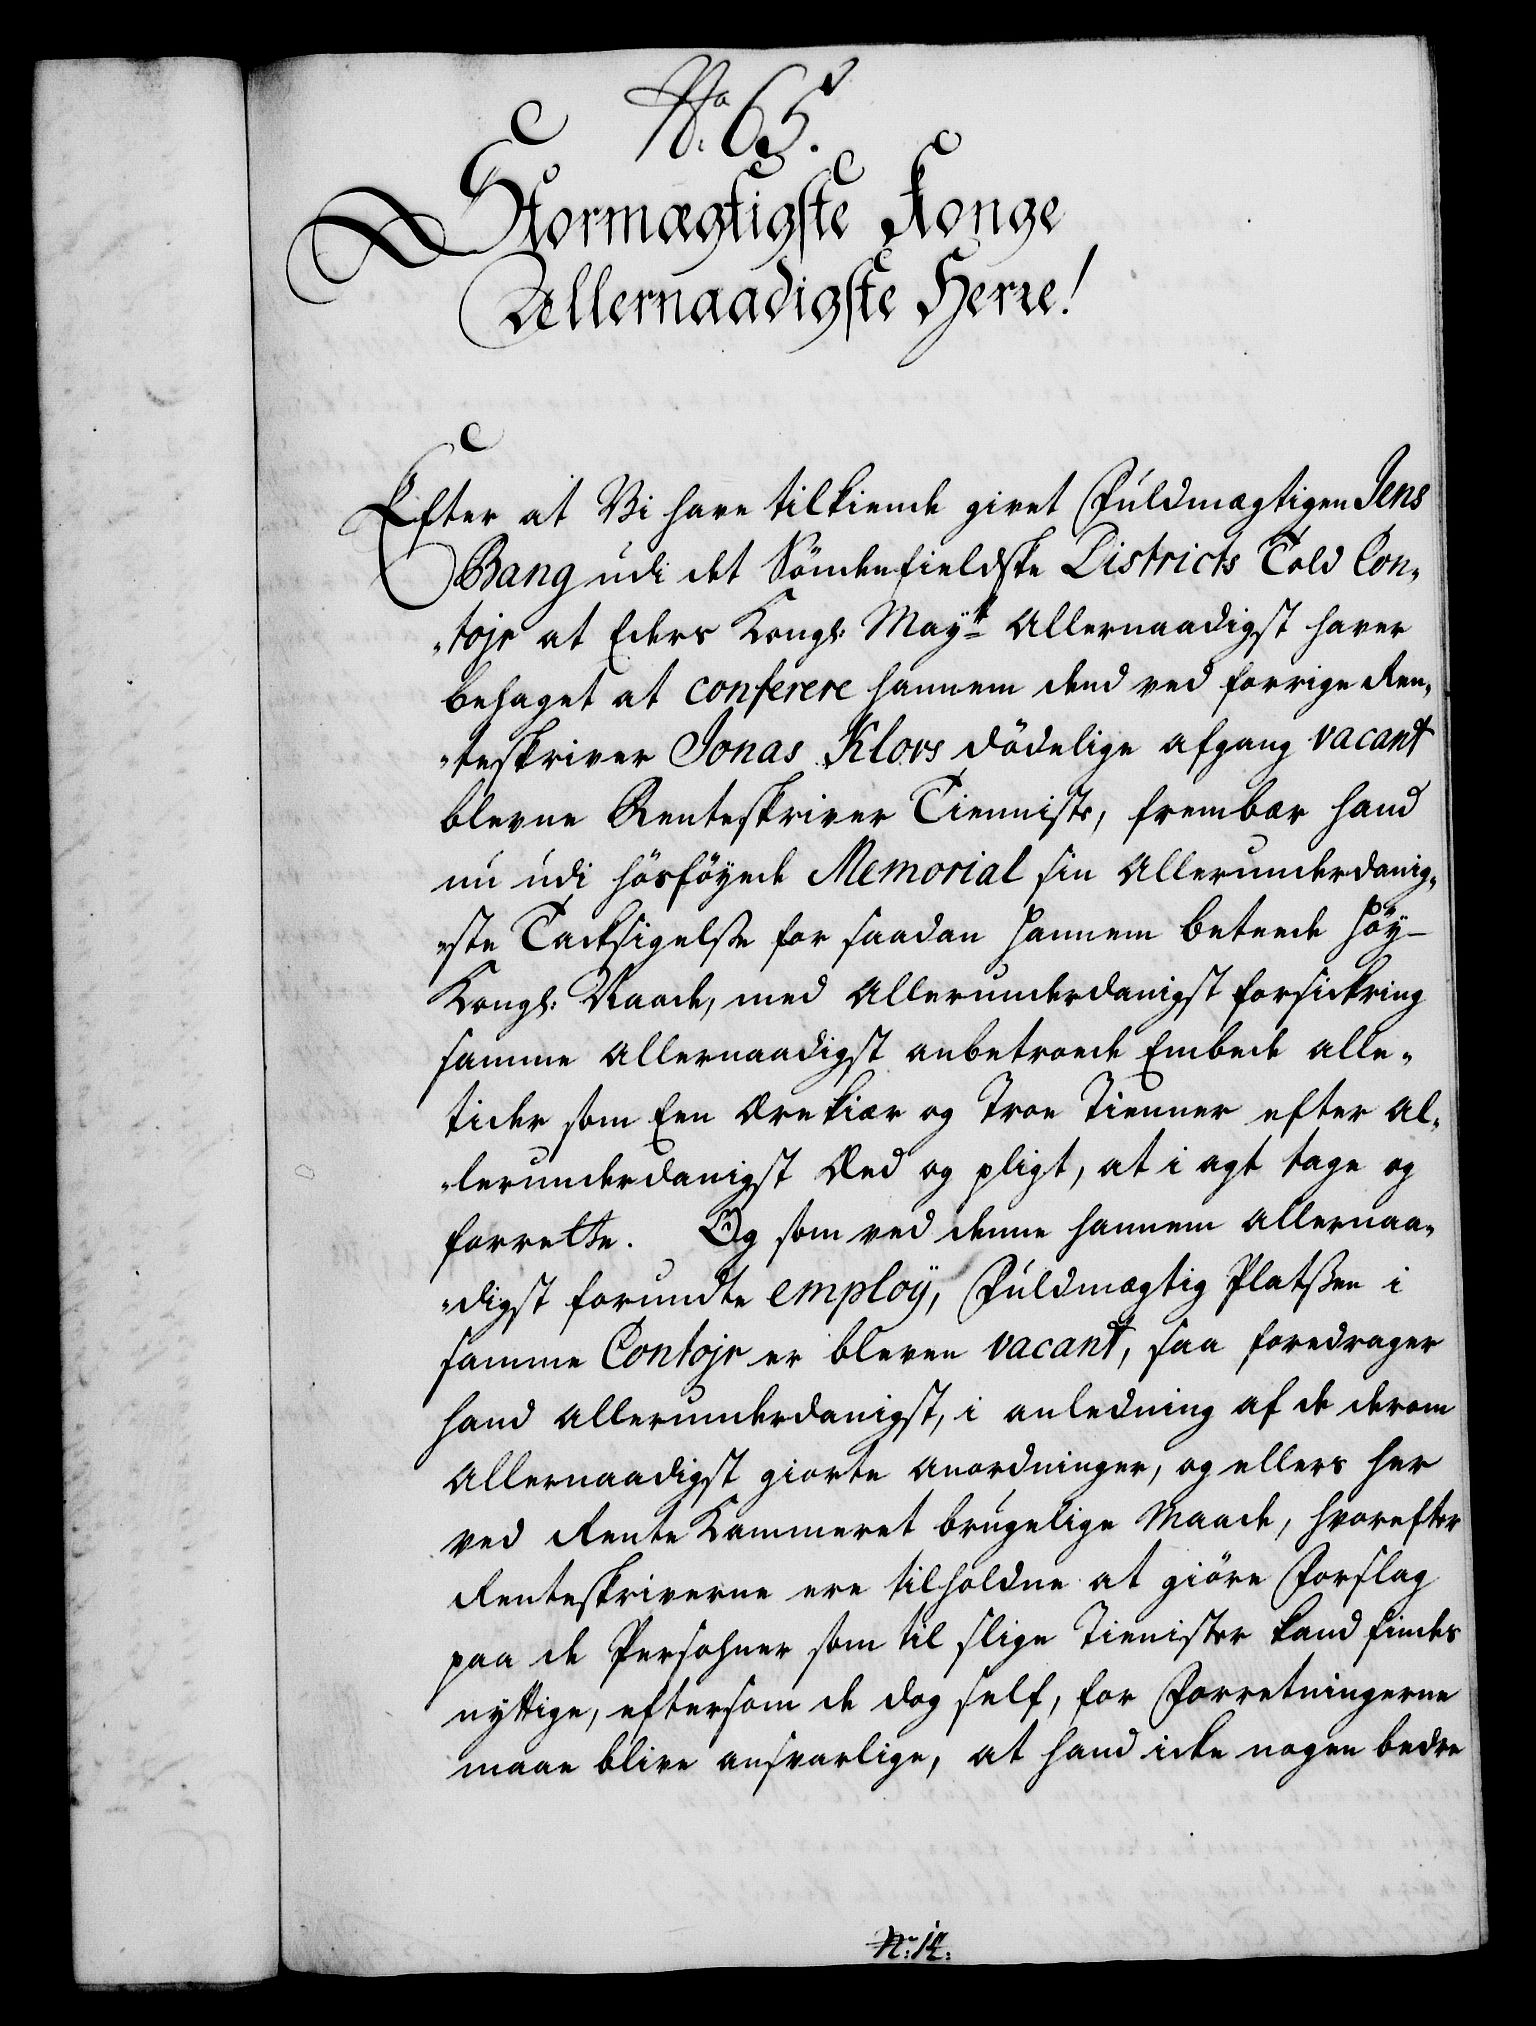 No. 65.
Stormægtigste Konge
Allernaadigste Herre!
Efter at Vi have tilkiende givet Fuldmægtigen Jens
Bang udi det Söndenfieldske Districts Told Con„
„toir at Eders Kongl: Mayt Allernaadigst haver
behaget at conferere hannem dend ved forrige Ren„
„teskriver Jonas Klovs dödelige afgang vacant
blevne Renteskriver Tienniste, frembær hand
nu udi hosföyede Memorial sin Allerunderdanig„
„ste Tacksigelse for saadan hannem beteede Höy-
Kongl: Naade, med Allerunderdanigst forsickring
samme Allernaadigst anbetroede Embede alle„
tider som Een Ærekiær og Troe Tienner efter Al„
„lerunderdanigst Æed og pligt, at i agt tage og
forrette. Og som ved denne hannem Allernaa„
„digst forundte employ, Fuldmægtig Platzen i
samme Contoir er bleven vacant, saa foredrager
hand Allerunderdanigst, i anledning af de derom
Allernaadigst giorte Anordninger, og ellers her
ved Rente Kammeret brugelige Maade, hvorefter
Renteskriverne ere tilholdne at giöre Forslag
paa de Persohner som til slige Tienister kand findes
nyttige, eftersom de dog self, for Forretningerne
maae blive ansvarlige, at hand icke nogen bedre
N: 14.